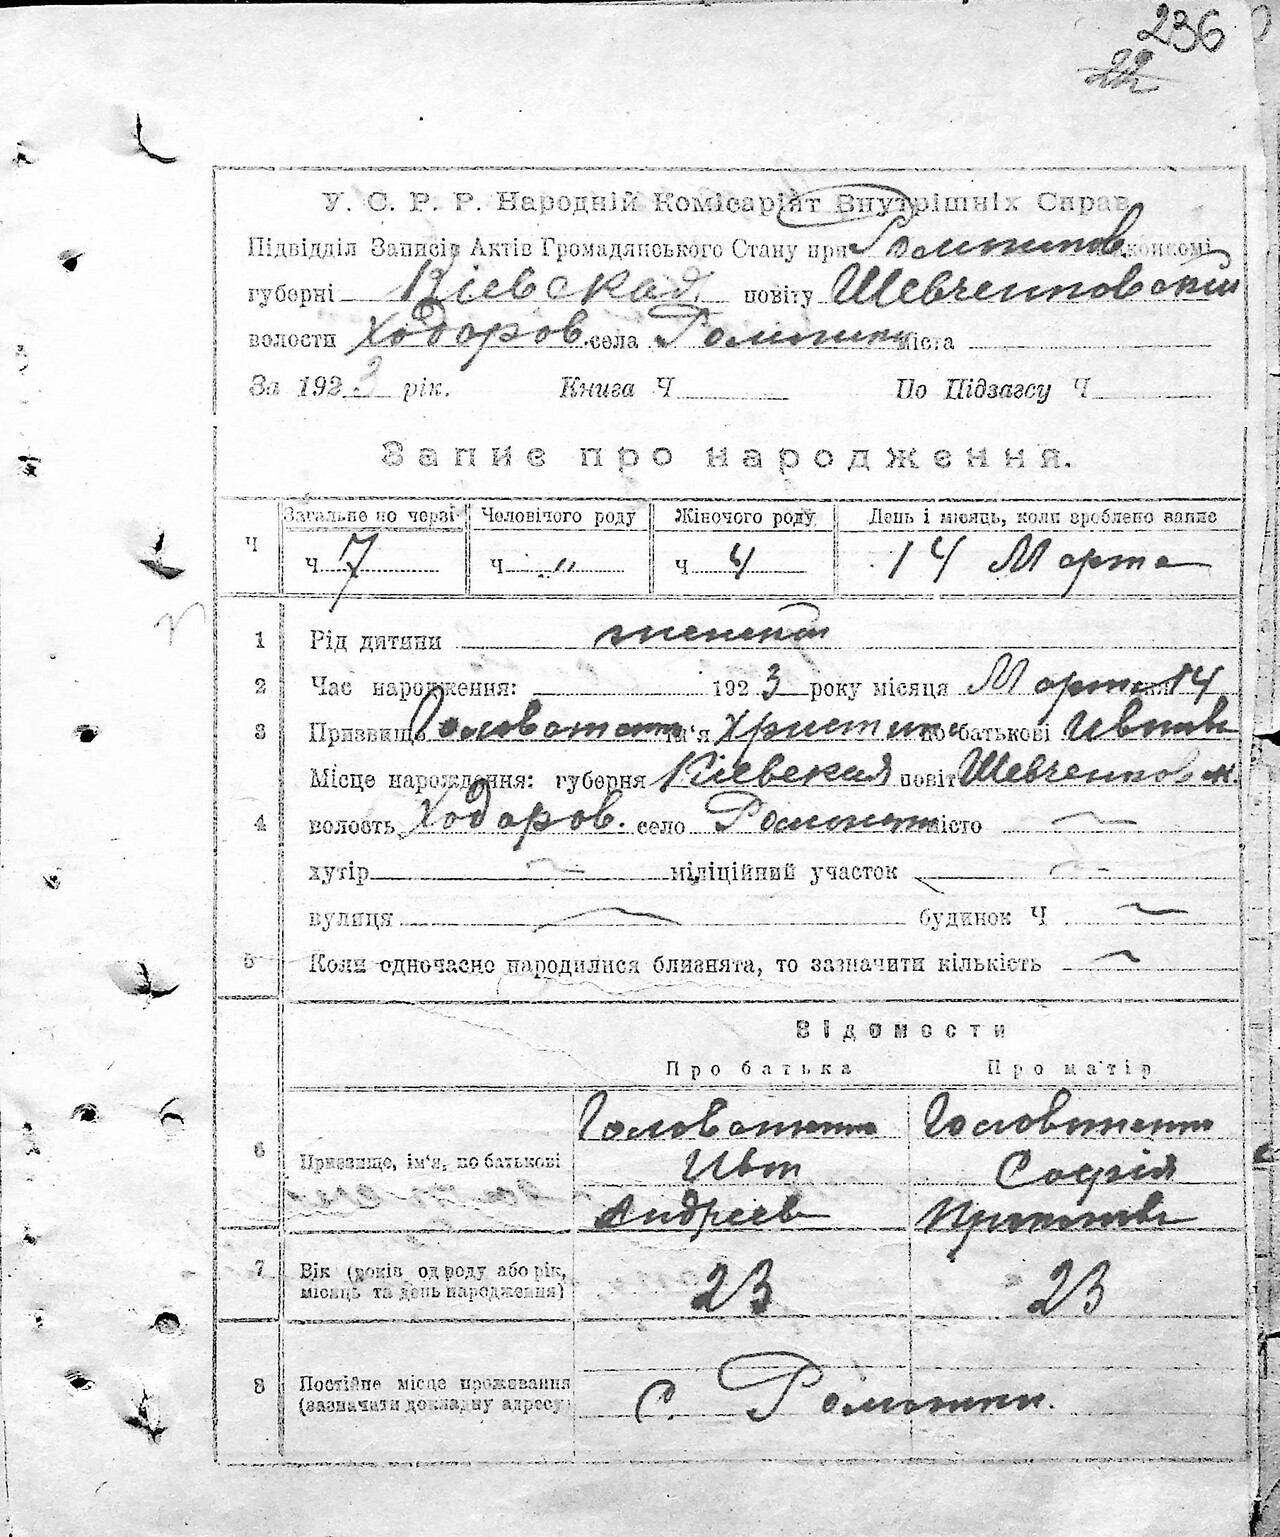 236
22
У. С. Р. Р. Народній Комісаріят Внутрішніх Справ
Підвідділ Записів Актів Громадянського Стану при конкомі
губерні Кіевская повіту Шевченковский
волости Ходоров. села міста
За 1923 рік. Книга Ч По Підзагсу Ч
Запис про народження.
Ч Загальне по черзі Человічого роду Жіночого роду День і місяць, коли зроблено запис
Ч 7 Ч " Ч 4 14 Марта
1 Рід дитини женский
2 Час народження: 1923 року місяця Марта 14
3 Призвище ім'я Христина по батькові Ивановна
Місце народження: губерня Кіевская повіт Шевченков
4 волость Ходоров. село місто
хутір міліційний участок
вулиця будинок Ч
5 Коли одночасно народилися близнята, то зазначити кількість
Відомости
Про батька Про матір
Головатенко
6 Призвище, ім'я, по батькові Иван Софія
Андреев
7 Вік (років од роду або рік, місяць та день народження) 23 23
8 Постійне місце проживання
(зазначити докладну адресу) с. Ромашки.